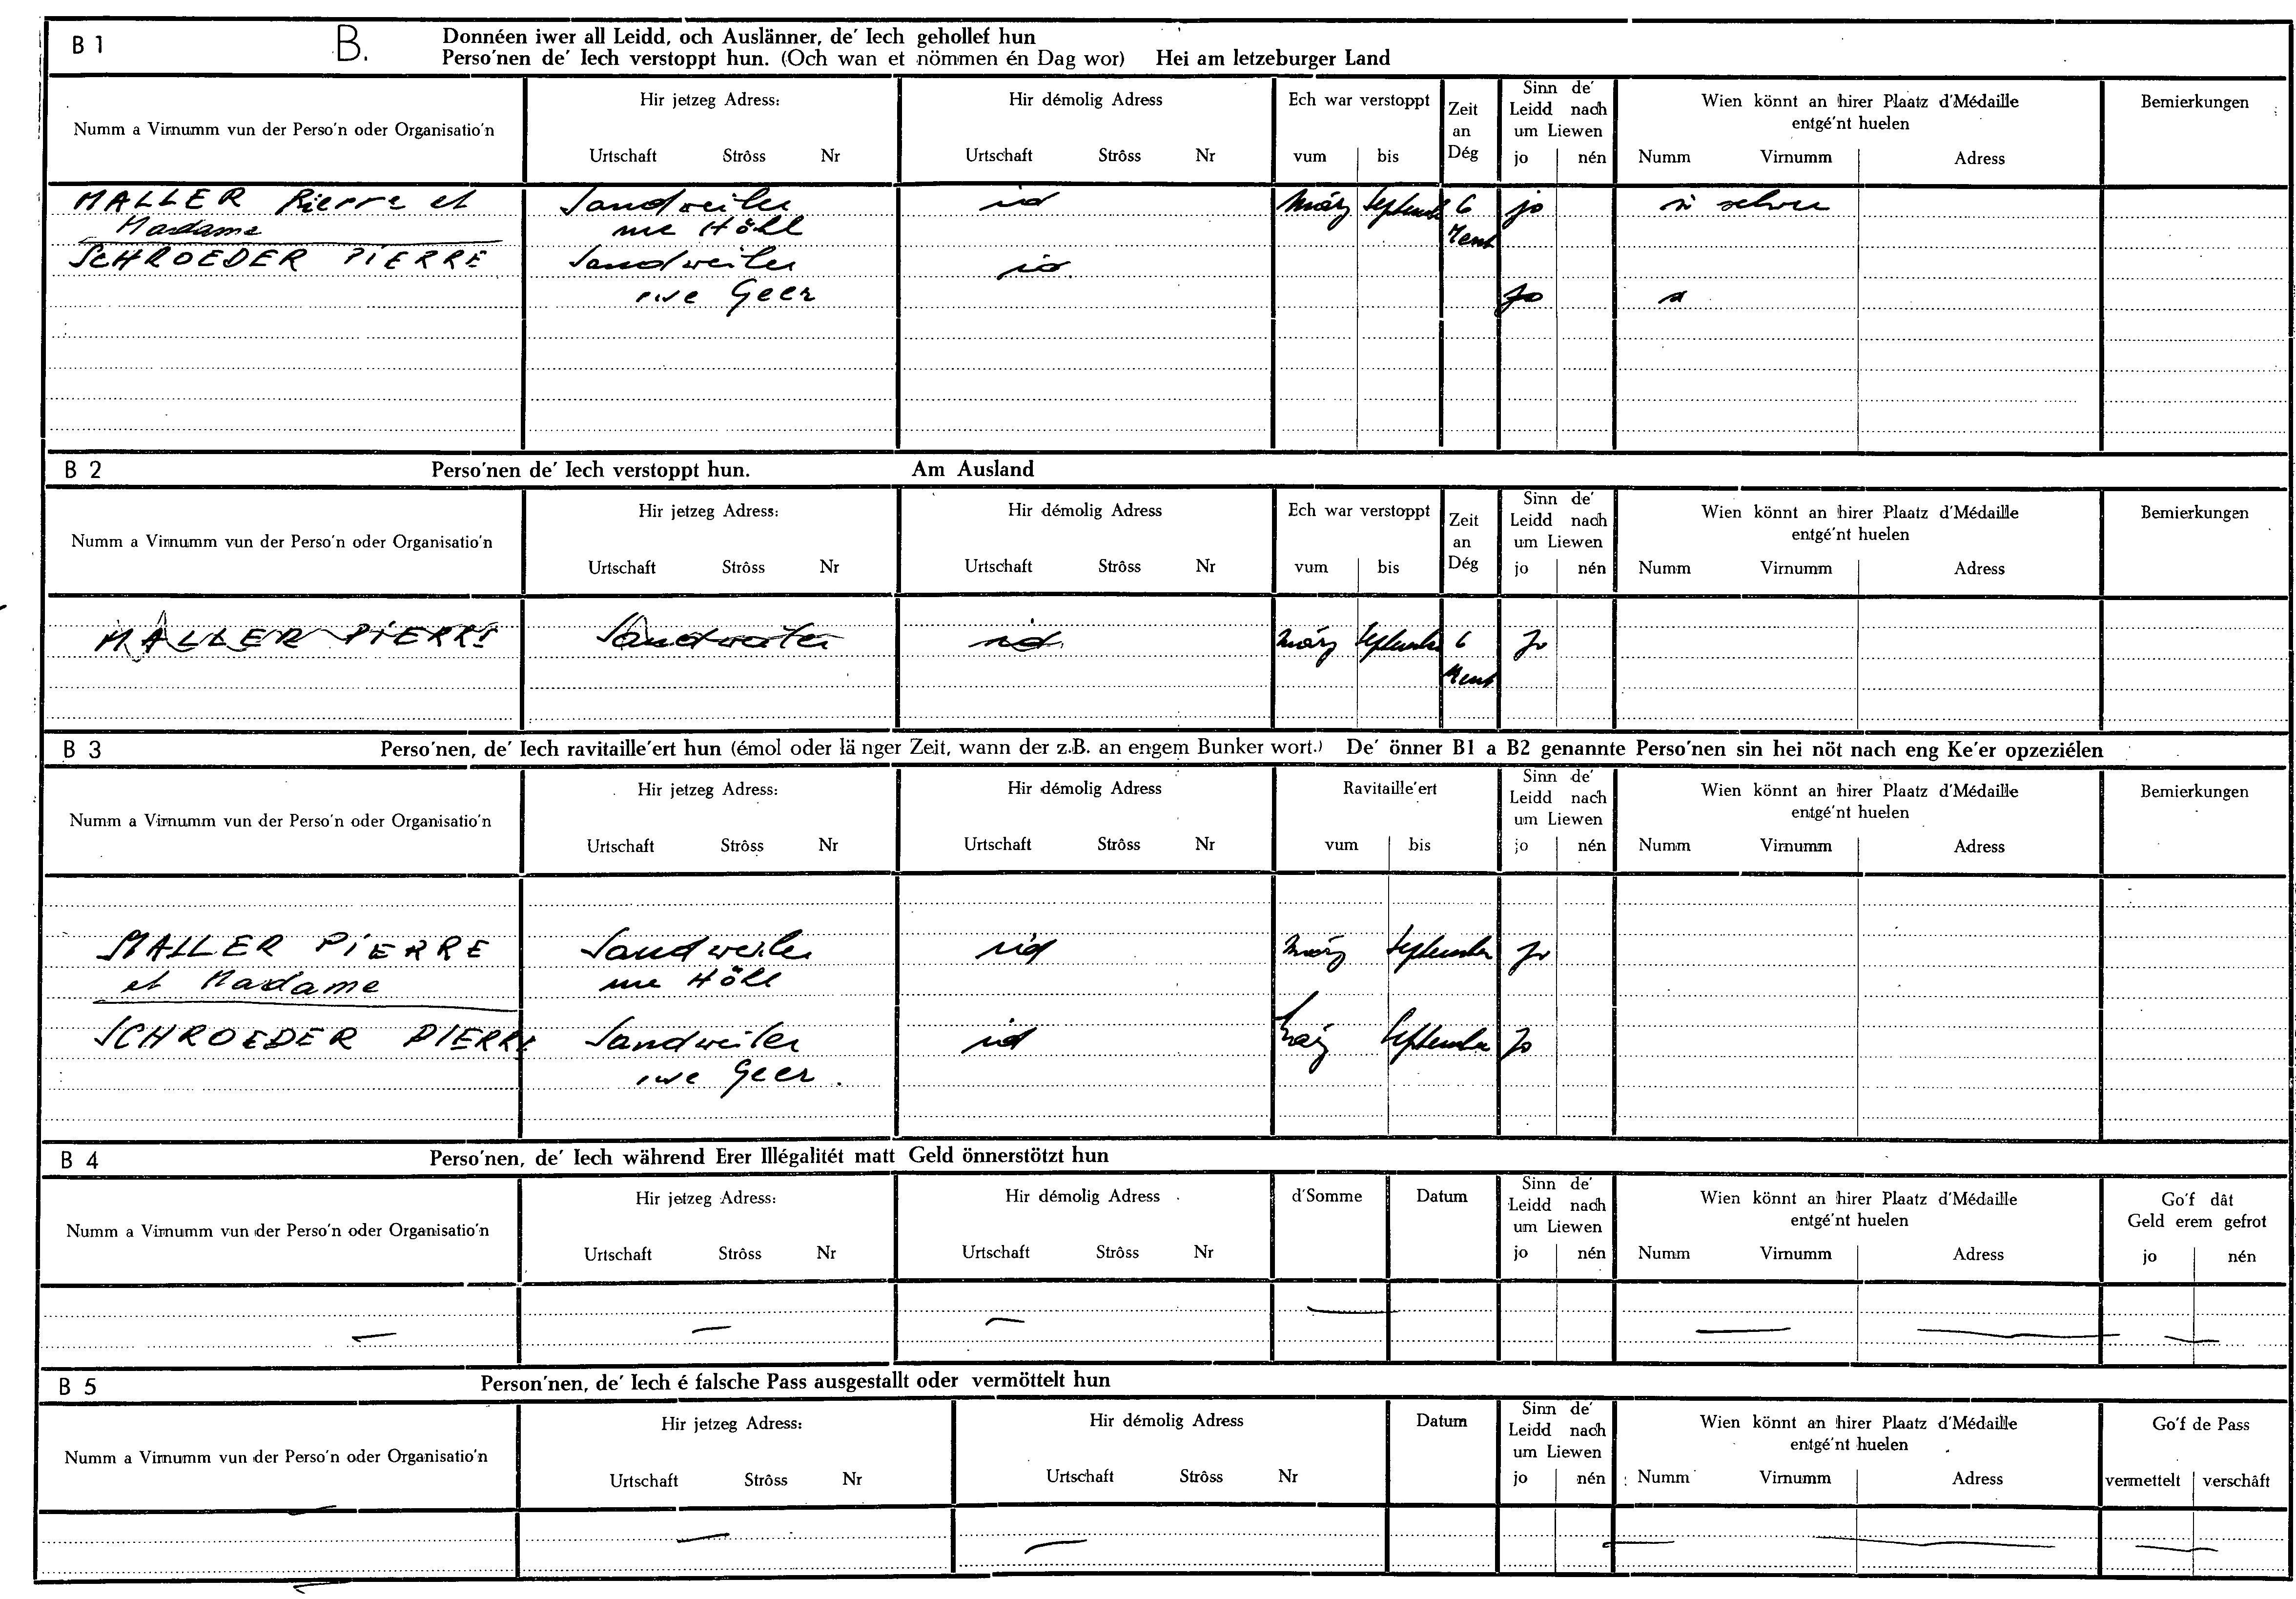 B 1
B.
Donnéen iwer all Leidd, och Auslänner, de' Iech gehollef hun
Perso'nen de' Iech verstoppt hun. (Och wan et nömmen én Dag wor) Hei am letzeburger Land
Numm a Virnumm vun der Perso'n oder Organisatio'n
Hir jetzeg Adress:
Urtschaft Strôss Nr
Hir démolig Adress
Urtschaft Strôss Nr
Ech war verstoppt
vum bis
Zeit
an
Dég
Sinn de'
Leidd nach
um Liewen
jo nén
Wien könnt an hirer Plaatz d'Médaille
entgé'nt huelen
Numm Virnumm Adress
Bemierkungen
MALLER Pierre et Sandweiler id März September 6 jo
Madame rue Höhl
SCHROEDER PIERRE Sandweiler id
Geer Jo
B 2
Perso'nen de' Iech verstoppt hun. Am Ausland
Numm a Virnumm vun der Perso'n oder Organisatio'n
Hir jetzeg Adress:
Urtschaft Strôss Nr
Hir démolig Adress
Urtschaft Strôss Nr
Ech war verstoppt
vum bis
Zeit
an
Dég
Sinn de'
Leidd nach
um Liewen
jo nén
Wien könnt an hirer Plaatz d'Médaille
entgé'nt huelen
Numm Virnumm Adress
Bemierkungen
MALLER PIERRE Sandweiler id März September 6 Jo
B 3
Perso'nen, de' Iech ravitaille'ert hun (émol oder länger Zeit, wann der z.B. an engem Bunker wort.) De' önner B1 a B2 genannte Perso'nen sin hei nöt nach eng Ke'er opzeziélen
Numm a Virnumm vun der Perso'n oder Organisatio'n
Hir jetzeg Adress:
Urtschaft Strôss Nr
Hir démolig Adress
Urtschaft Strôss Nr
Ravitaille'ert
vum bis
Sinn de'
Leidd nach
um Liewen
jo nén
Wien könnt an hirer Plaatz d'Médaille
entgé'nt huelen
Numm Virnumm Adress
Bemierkungen
MALLER PIERRE Sandweiler id März September Jo
et Madame rue Höhl
SCHROEDER PIERRE Sandweiler id März September Jo
Geer
B 4
Perso'nen, de' Iech während Erer Illégalitét matt Geld önnerstötzt hun
Numm a Virnumm vun der Perso'n oder Organisatio'n
Hir jetzeg Adress:
Urtschaft Strôss Nr
Hir démolig Adress
Urtschaft Strôss Nr
d'Somme
Datum
Sinn de'
Leidd nach
um Liewen
jo nén
Wien könnt an hirer Plaatz d'Médaille
entgé'nt huelen
Numm Virnumm Adress
Go'f dât
Geld erem gefrot
jo nén
B 5
Person'nen, de' Iech é falsche Pass ausgestallt oder vermöttelt hun
Numm a Virnumm vun der Perso'n oder Organisatio'n
Hir jetzeg Adress:
Urtschaft Strôss Nr
Hir démolig Adress
Urtschaft Strôss Nr
Datum
Sinn de'
Leidd nach
um Liewen
jo nén
Wien könnt an hirer Plaatz d'Médaille
entgé'nt huelen
Numm Virnumm Adress
Go'f de Pass
vermettelt verschâft